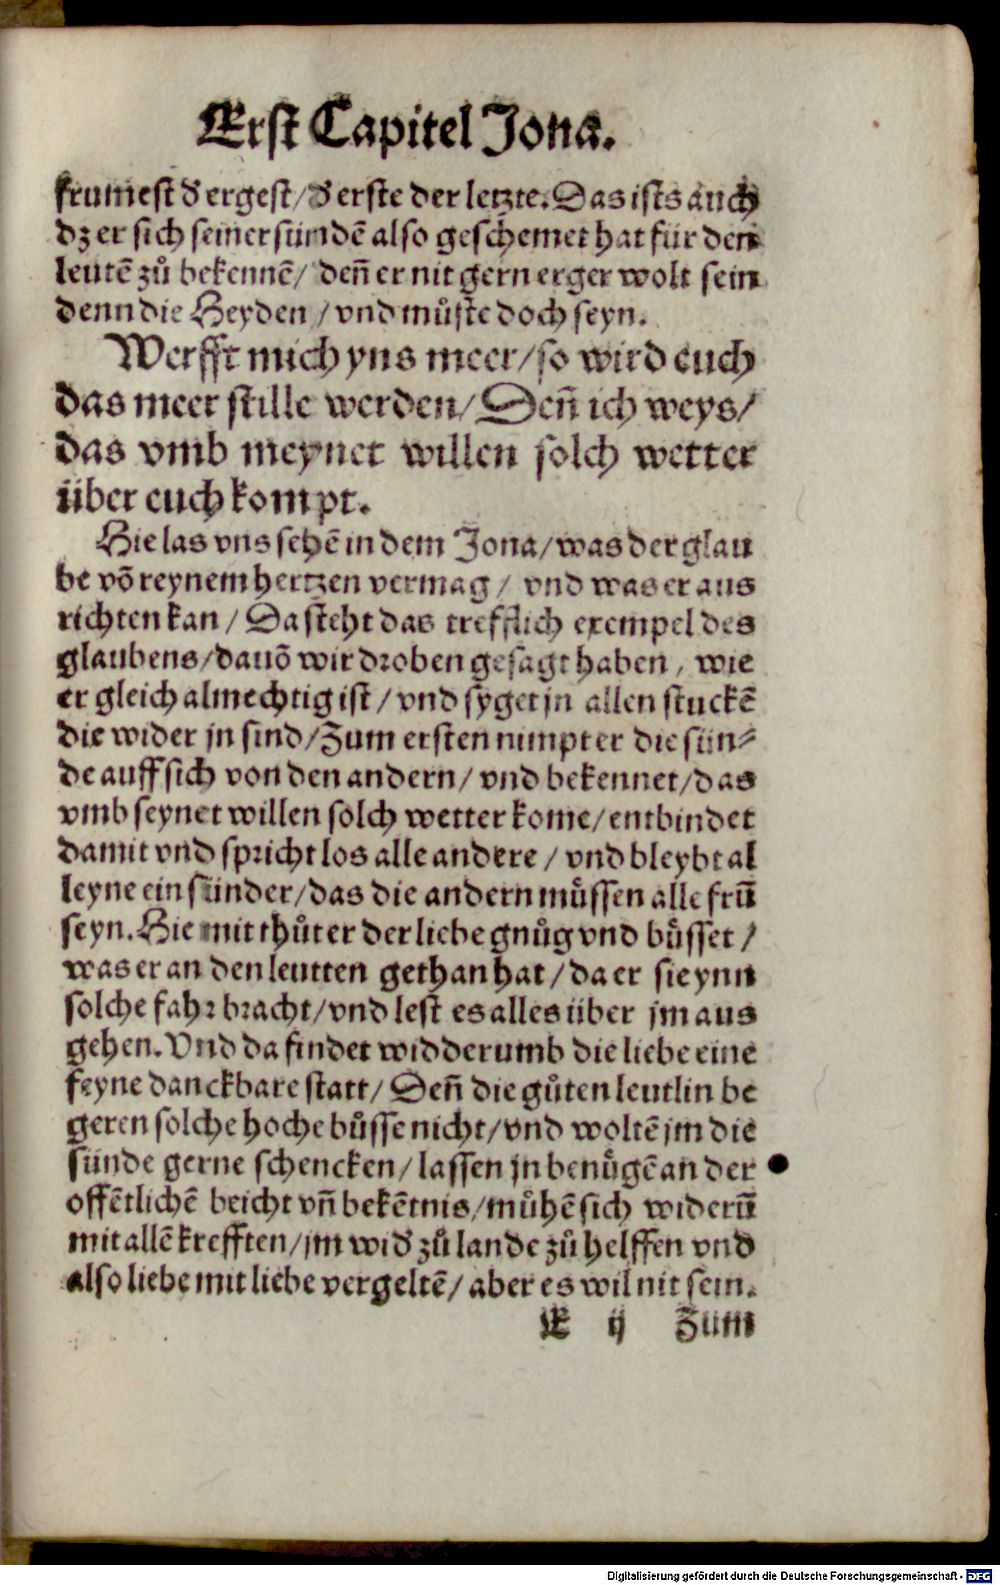 Erst Capitel Jona.
frumest d̕ ergest/ d̕ erste der letzte. Das ists auch
dz er sich seiner sündē also geschemet hat für den
leutē zů bekennē/ deñ er nit gern erger wolt sein
denn die Heyden/ vnd můste doch seyn.
Werfft mich yns meer/ so wird euch
das meer stille werden/ Deñ ich weys/
das vmb meynet willen solch wetter
über euch kompt.
Hie las vns sehē in dem Jona/ was der glau
be võ reynem hertzen vermag/ vnd was er aus
richten kan/ Da steht das trefflich exempel des
glaubens/ dauõ wir droben gesagt haben, wie
er gleich almechtig ist/ vnd syget jn allen stuckē
die wider jn sind/ Zum ersten nimpt er die sün⸗
de auff sich von den andern/ vnd bekennet/ das
vmb seynet willen solch wetter kome/ entbindet
damit vnd spricht los alle andere/ vnd bleybt al
leyne ein sünder/ das die andern müssen alle frū
seyn. Hie mit thůt er der liebe gnůg vnd bůsset/
was er an den leutten gethan hat/ da er sie ynn
solche fahr bracht/ vnd lest es alles über jm aus
gehen. Vnd da findet widderumb die liebe eine
feyne danckbare statt/ Deñ die gůten leutlin be
geren solche hoche bůsse nicht/ vnd woltē jm die
sünde gerne schencken/ lassen jn benůgē an der
offētlichē beicht vñ bekētnis/ můhē sich widerū
mit allē krefften/ jm wid̕ zů lande zů helffen vnd
also liebe mit liebe vergeltē/ aber es wil nit sein.
E ij Zum
Digitalisierung gefördert durch die Deutsche Forschungsgemeinschaft - DFG